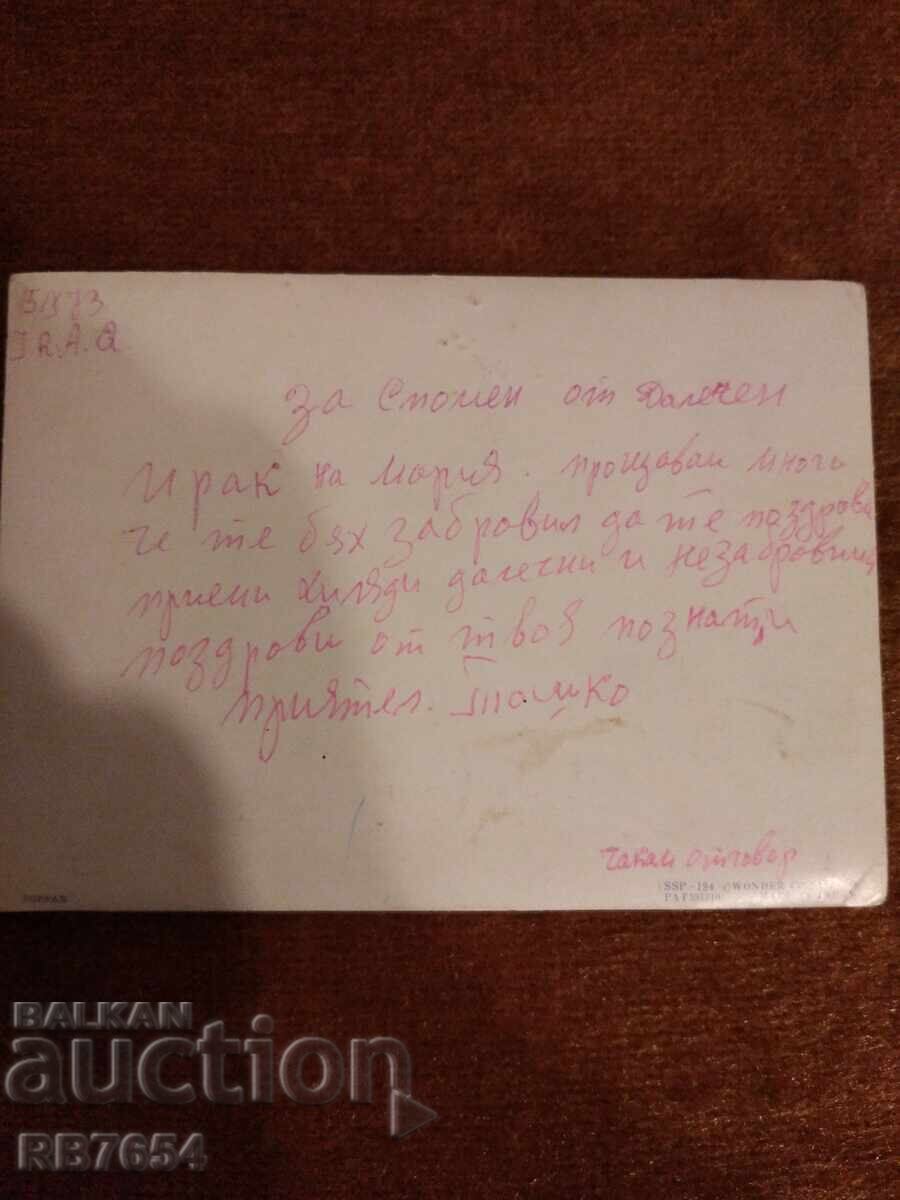 I R.A.Q
За Спомен от Далечен
Ирак на Мария. прощавай много
че те бях забровил да те поздрови
приеми Хиляди далечни и незабровими
поздрови от твоя познат и
приятел. Тошко
чакам отговор
SSP-194 © WONDER CO.
BALKAN
auction
RB7654